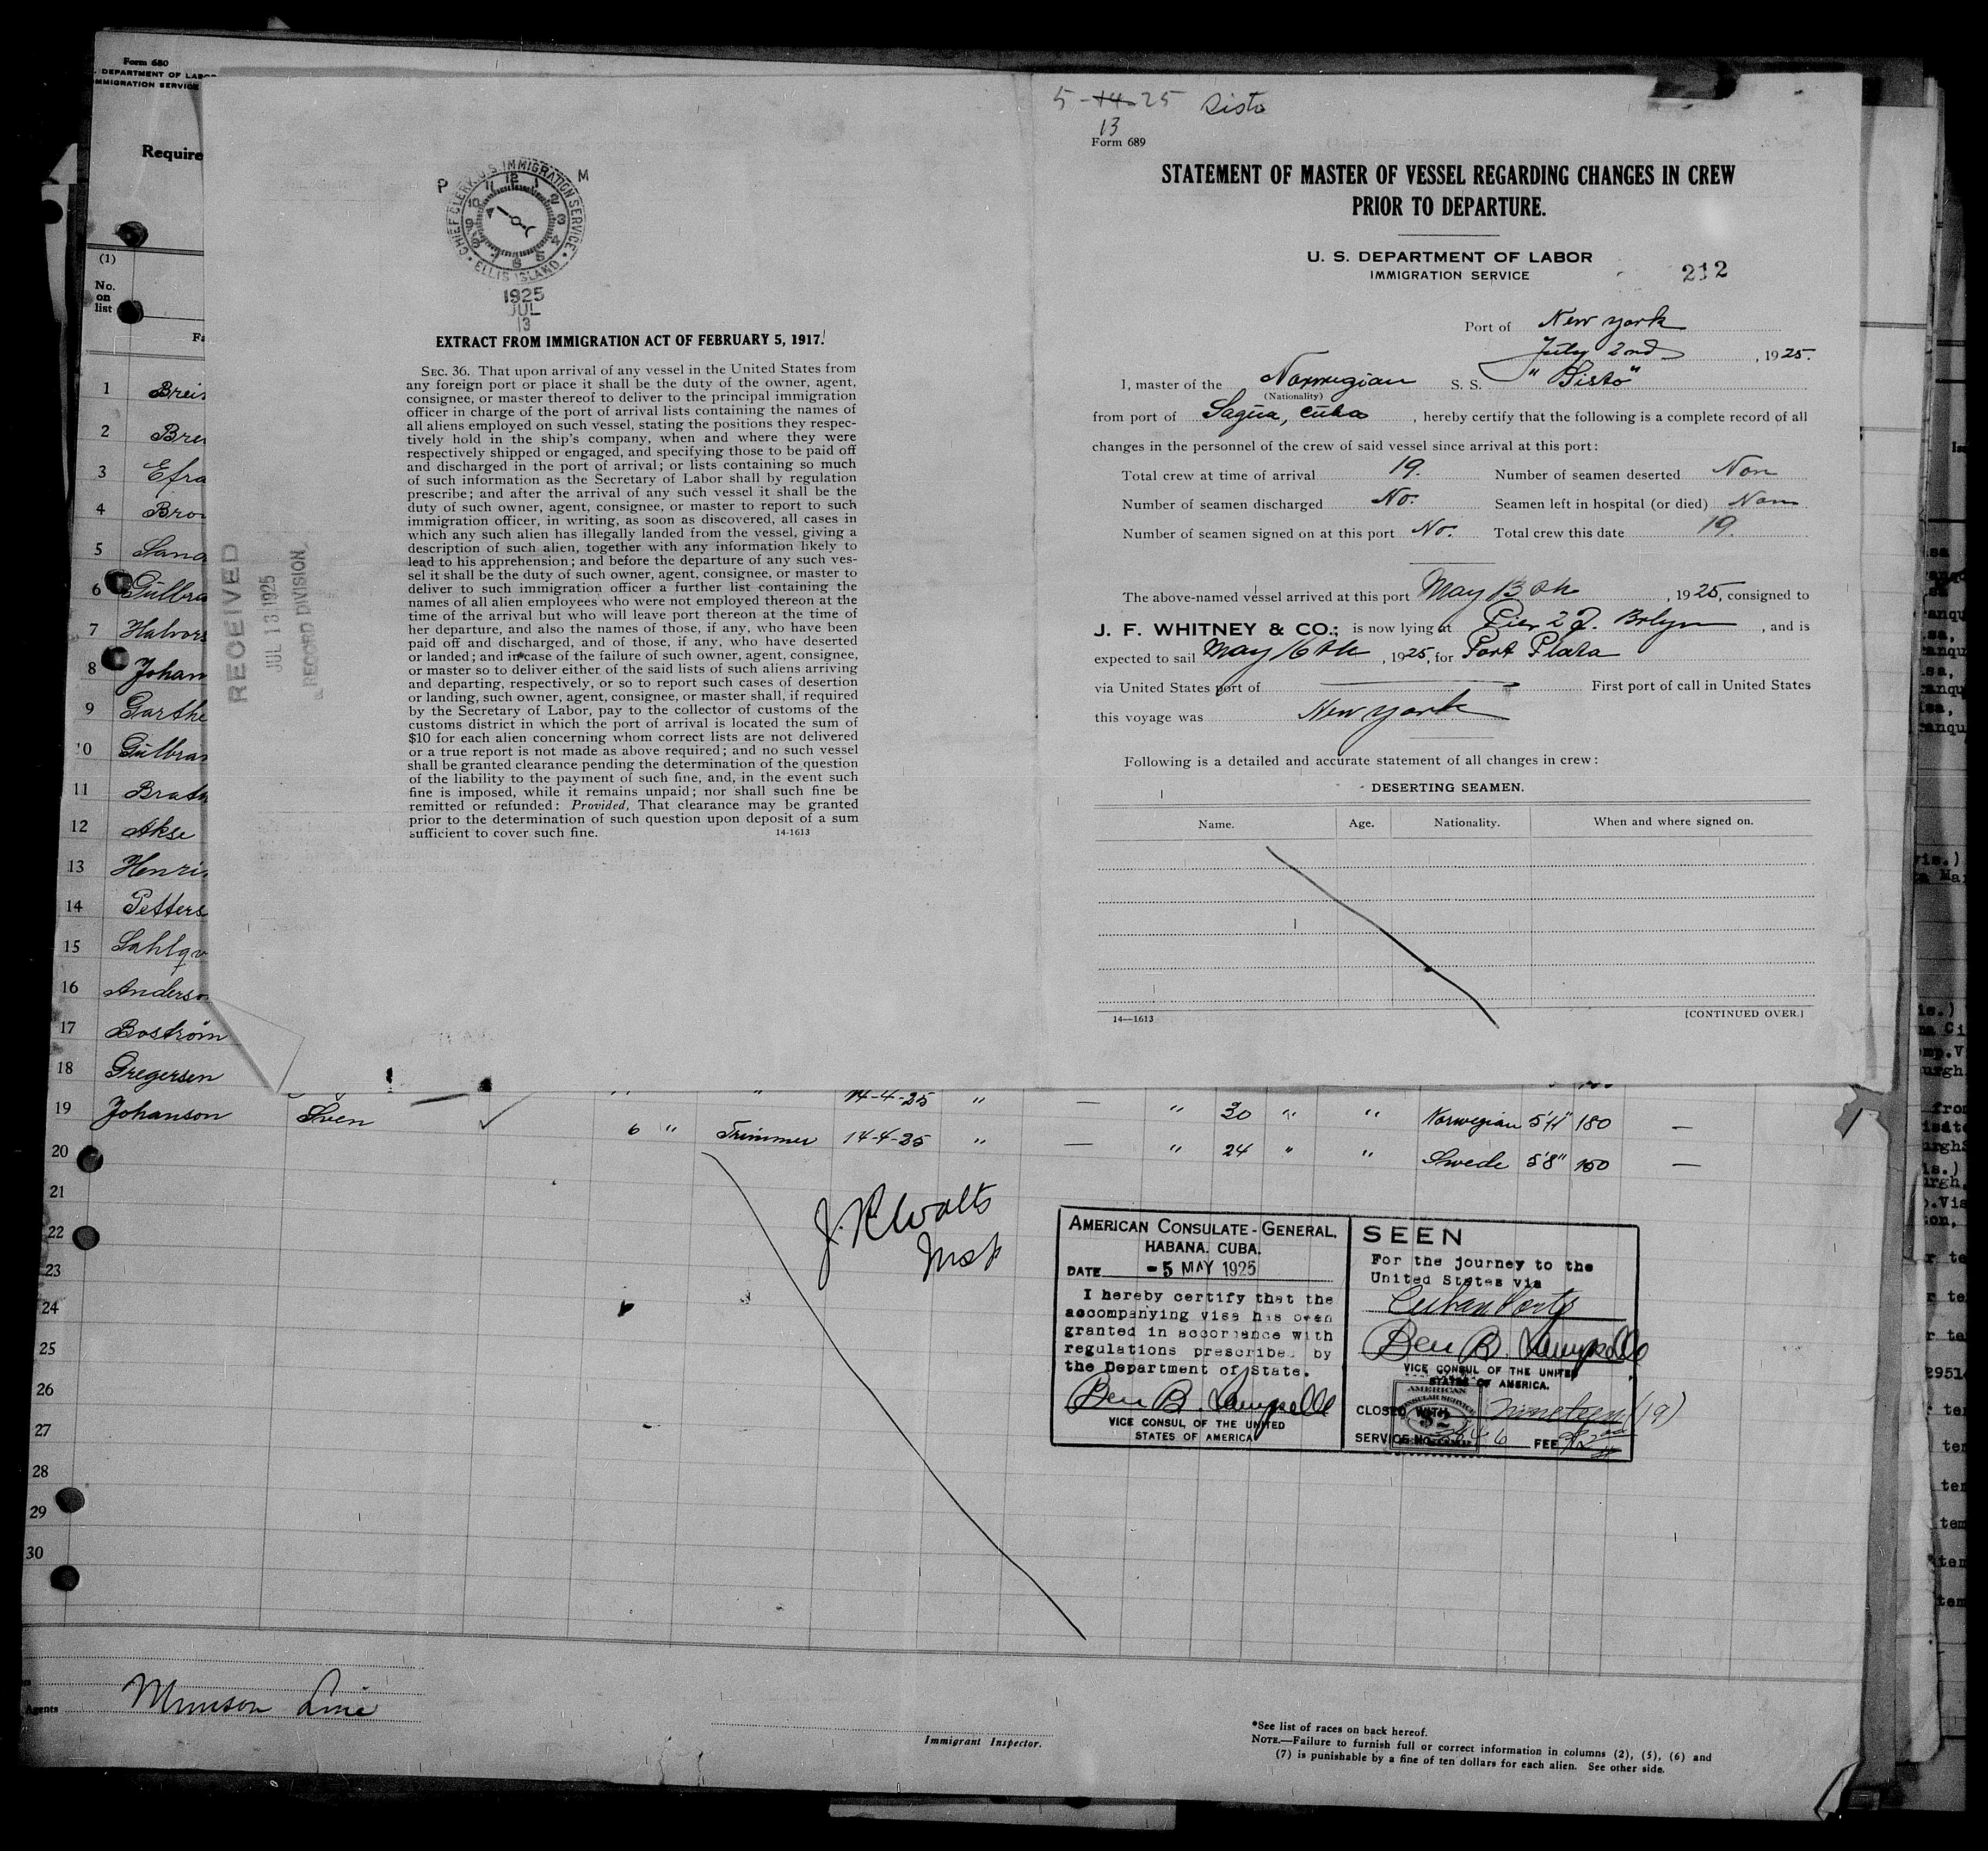 Form 680
DEPARTMENT OF LABOR
IMMIGRATION SERVICE
Require
(1)
No.
on
list
1 Brei
2 Bre
3 Efra
4 Bro
5 Sand
6 Gulbra
7 Halvors
8 Johan
9 Garthe
10 Gulbran
11 Brath
12 Akse
13 Henri
14 Petters
15 Sahlqv
16 Anderso
17 Boström
18 Gregersen
19 Johanson Sven
20
21
22
23
24
25
26
27
28
29
30
14-4-25 " — " 30 " " Norwegian 5'11" 180 —
6 " Trimmer 14-4-25 " — " 24 " " Swede 5'8" 150 —
P M
CHIEF CLERK U.S. IMMIGRATION SERVICE
ELLIS ISLAND
1925
JUL
13
RECEIVED
JUL 13 1925
RECORD DIVISION
EXTRACT FROM IMMIGRATION ACT OF FEBRUARY 5, 1917.
SEC. 36. That upon arrival of any vessel in the United States from
any foreign port or place it shall be the duty of the owner, agent,
consignee, or master thereof to deliver to the principal immigration
officer in charge of the port of arrival lists containing the names of
all aliens employed on such vessel, stating the positions they respec-
tively hold in the ship's company, when and where they were
respectively shipped or engaged, and specifying those to be paid off
and discharged in the port of arrival; or lists containing so much
of such information as the Secretary of Labor shall by regulation
prescribe; and after the arrival of any such vessel it shall be the
duty of such owner, agent, consignee, or master to report to such
immigration officer, in writing, as soon as discovered, all cases in
which any such alien has illegally landed from the vessel, giving a
description of such alien, together with any information likely to
lead to his apprehension; and before the departure of any such ves-
sel it shall be the duty of such owner, agent, consignee, or master to
deliver to such immigration officer a further list containing the
names of all alien employees who were not employed thereon at the
time of the arrival but who will leave port thereon at the time of
her departure, and also the names of those, if any, who have been
paid off and discharged, and of those, if any, who have deserted
or landed; and in case of the failure of such owner, agent, consignee,
or master so to deliver either of the said lists of such aliens arriving
and departing, respectively, or so to report such cases of desertion
or landing, such owner, agent, consignee, or master shall, if required
by the Secretary of Labor, pay to the collector of customs of the
customs district in which the port of arrival is located the sum of
$10 for each alien concerning whom correct lists are not delivered
or a true report is not made as above required; and no such vessel
shall be granted clearance pending the determination of the question
of the liability to the payment of such fine, and, in the event such
fine is imposed, while it remains unpaid; nor shall such fine be
remitted or refunded: Provided, That clearance may be granted
prior to the determination of such question upon deposit of a sum
sufficient to cover such fine. 14-1613
5-14-25 Sisto
13
Form 689
STATEMENT OF MASTER OF VESSEL REGARDING CHANGES IN CREW
PRIOR TO DEPARTURE.
U. S. DEPARTMENT OF LABOR
IMMIGRATION SERVICE
212
Port of New York
July 2nd, 1925.
I, master of the Norwegian S. S. "Sisto"
(Nationality)
from port of Sagua, Cuba, hereby certify that the following is a complete record of all
changes in the personnel of the crew of said vessel since arrival at this port:
Total crew at time of arrival 19. Number of seamen deserted Non
Number of seamen discharged No. Seamen left in hospital (or died) Non
Number of seamen signed on at this port No. Total crew this date 19.
The above-named vessel arrived at this port May 13 th, 1925, consigned to
J. F. WHITNEY & CO.; is now lying at Pier 2 J. Brlyn, and is
expected to sail May 16th, 1925, for Port Plata
via United States port of First port of call in United States
this voyage was New York
Following is a detailed and accurate statement of all changes in crew:
DESERTING SEAMEN.
Name. Age. Nationality. When and where signed on.
14—1613 [CONTINUED OVER.]
J. R. Walts
Insp
AMERICAN CONSULATE-GENERAL,
HABANA. CUBA.
DATE -5 MAY 1925
I hereby certify that the
accompanying visa has been
granted in accordance with
regulations prescribed by
the Department of State.
Ben B. Lampelle
VICE CONSUL OF THE UNITED
STATES OF AMERICA
SEEN
For the journey to the
United States via
Cuban Ports
Ben B. Lampelle
VICE CONSUL OF THE UNITED
STATES OF AMERICA.
CLOSED WITH nineteen (19)
SERVICE NO. FEE
Agents Munson Line
Immigrant Inspector.
*See list of races on back hereof.
NOTE.—Failure to furnish full or correct information in columns (2), (5), (6) and
(7) is punishable by a fine of ten dollars for each alien. See other side.